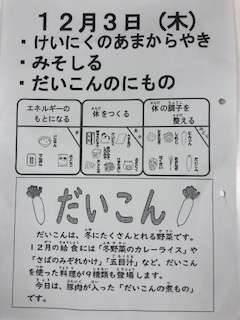 12月3日（木）
・けいにくのあまからやき
・みそしる
・だいこんのにもの
エネルギーの
もとになる
体をつくる
体の調子を
整える
だいこん
だいこんは、冬にたくさんとれる野菜です。
12月の給食には「冬野菜のカレーライス」や
「さばのみぞれかけ」「五目汁」など、だいこん
を使った料理が9種類も登場します。
今日は、豚肉が入った「だいこんの煮もの」
です。